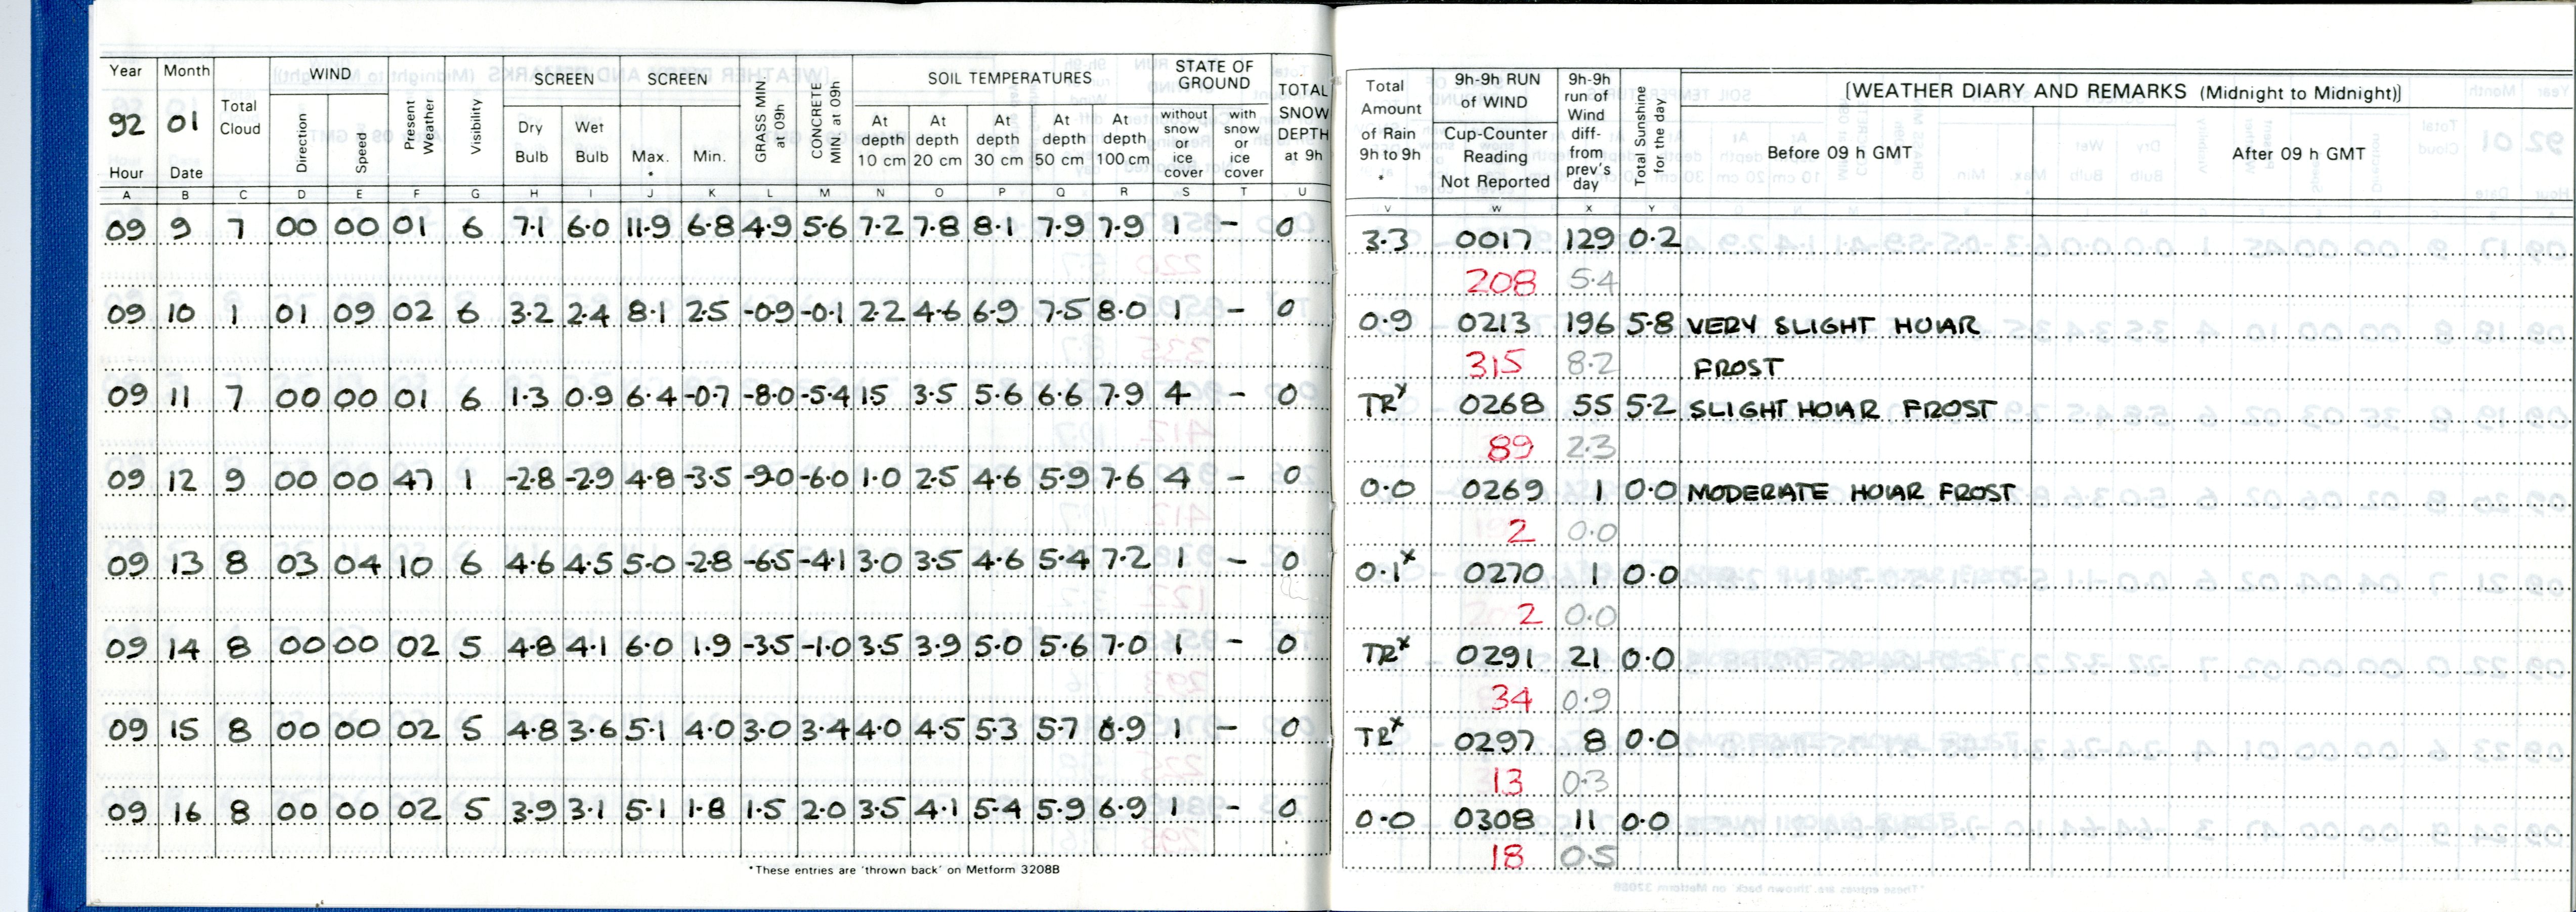 Year Month WIND SCREEN SCREEN SOIL TEMPERATURES STATE OF GROUND
92 01 Total Cloud Direction Speed Present Weather Visibility Dry Bulb Wet Bulb Max. * Min. GRASS MIN at 09h CONCRETE MIN at 09h At depth 10 cm At depth 20 cm At depth 30 cm At depth 50 cm At depth 100 cm without snow or ice cover with snow or ice cover TOTAL SNOW DEPTH at 9h
Hour Date
A B C D E F G H I J K L M N O P Q R S T U
09 9 7 00 00 01 6 7.1 6.0 11.9 6.8 4.9 5.6 7.2 7.8 8.1 7.9 7.9 1 - 0
09 10 1 01 09 02 6 3.2 2.4 8.1 2.5 -0.9 -0.1 2.2 4.6 6.9 7.5 8.0 1 - 0
09 11 7 00 00 01 6 1.3 0.9 6.4 -0.7 -8.0 -5.4 15 3.5 5.6 6.6 7.9 4 - 0
09 12 9 00 00 47 1 -2.8 -2.9 4.8 -3.5 -9.0 -6.0 1.0 2.5 4.6 5.9 7.6 4 - 0
09 13 8 03 04 10 6 4.6 4.5 5.0 -2.8 -6.5 -4.1 3.0 3.5 4.6 5.4 7.2 1 - 0
09 14 8 00 00 02 5 4.8 4.1 6.0 1.9 -3.5 -1.0 3.5 3.9 5.0 5.6 7.0 1 - 0
09 15 8 00 00 02 5 4.8 3.6 5.1 4.0 3.0 3.4 4.0 4.5 5.3 5.7 6.9 1 - 0
09 16 8 00 00 02 5 3.9 3.1 5.1 1.8 1.5 2.0 3.5 4.1 5.4 5.9 6.9 1 - 0
*These entries are 'thrown back' on Metform 3208B
Total Amount of Rain 9h to 9h * 9h-9h RUN of WIND Cup-Counter Reading Not Reported 9h-9h run of Wind diff-from prev's day Total Sunshine for the day [WEATHER DIARY AND REMARKS (Midnight to Midnight)]
Before 09 h GMT After 09 h GMT
V W X Y
3.3 0017 129 0.2
208 5.4
0.9 0213 196 5.8 VERY SLIGHT HOAR
315 8.2 FROST
TRx 0268 55 5.2 SLIGHT HOAR FROST
89 2.3
0.0 0269 1 0.0 MODERATE HOAR FROST
2 0.0
0.1x 0270 1 0.0
2 0.0
TRx 0291 21 0.0
34 0.9
TRx 0297 8 0.0
13 0.3
0.0 0308 11 0.0
18 0.5